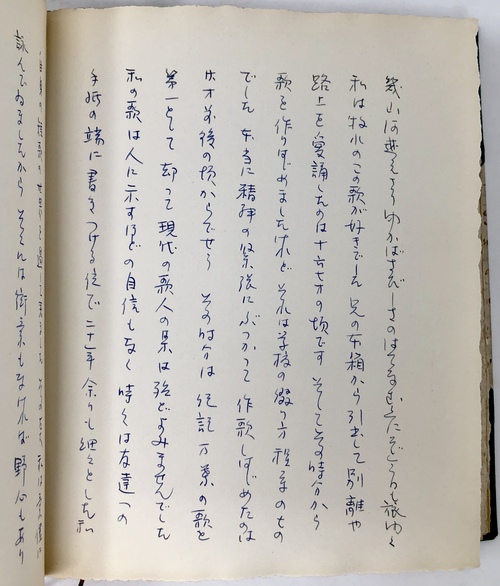 幾山河越えさりゆかばさびしさのはてなむ国ぞけふも旅ゆく
私は牧水のこの歌が好きでした 兄の本箱から引出して別離や
路上を愛誦したのは十六七才の頃です そしてその時分から
歌を作りはじめましたけれど それは学校の綴り方程度のもの
でした 本当に精神の緊張にぶつかつて 作歌しはじめたのは
廿才前後の頃からでせう その時分は 記紀 万葉の歌を
第一として 却つて現代の歌人の集は殆どよみませんでした
私の歌は人に示すほどの自信もなく 時々は友達への
手紙の端に書きつける位で 二十年余りも細々とした私
詠んでゐましたから それには街業もなければ 野心もあり